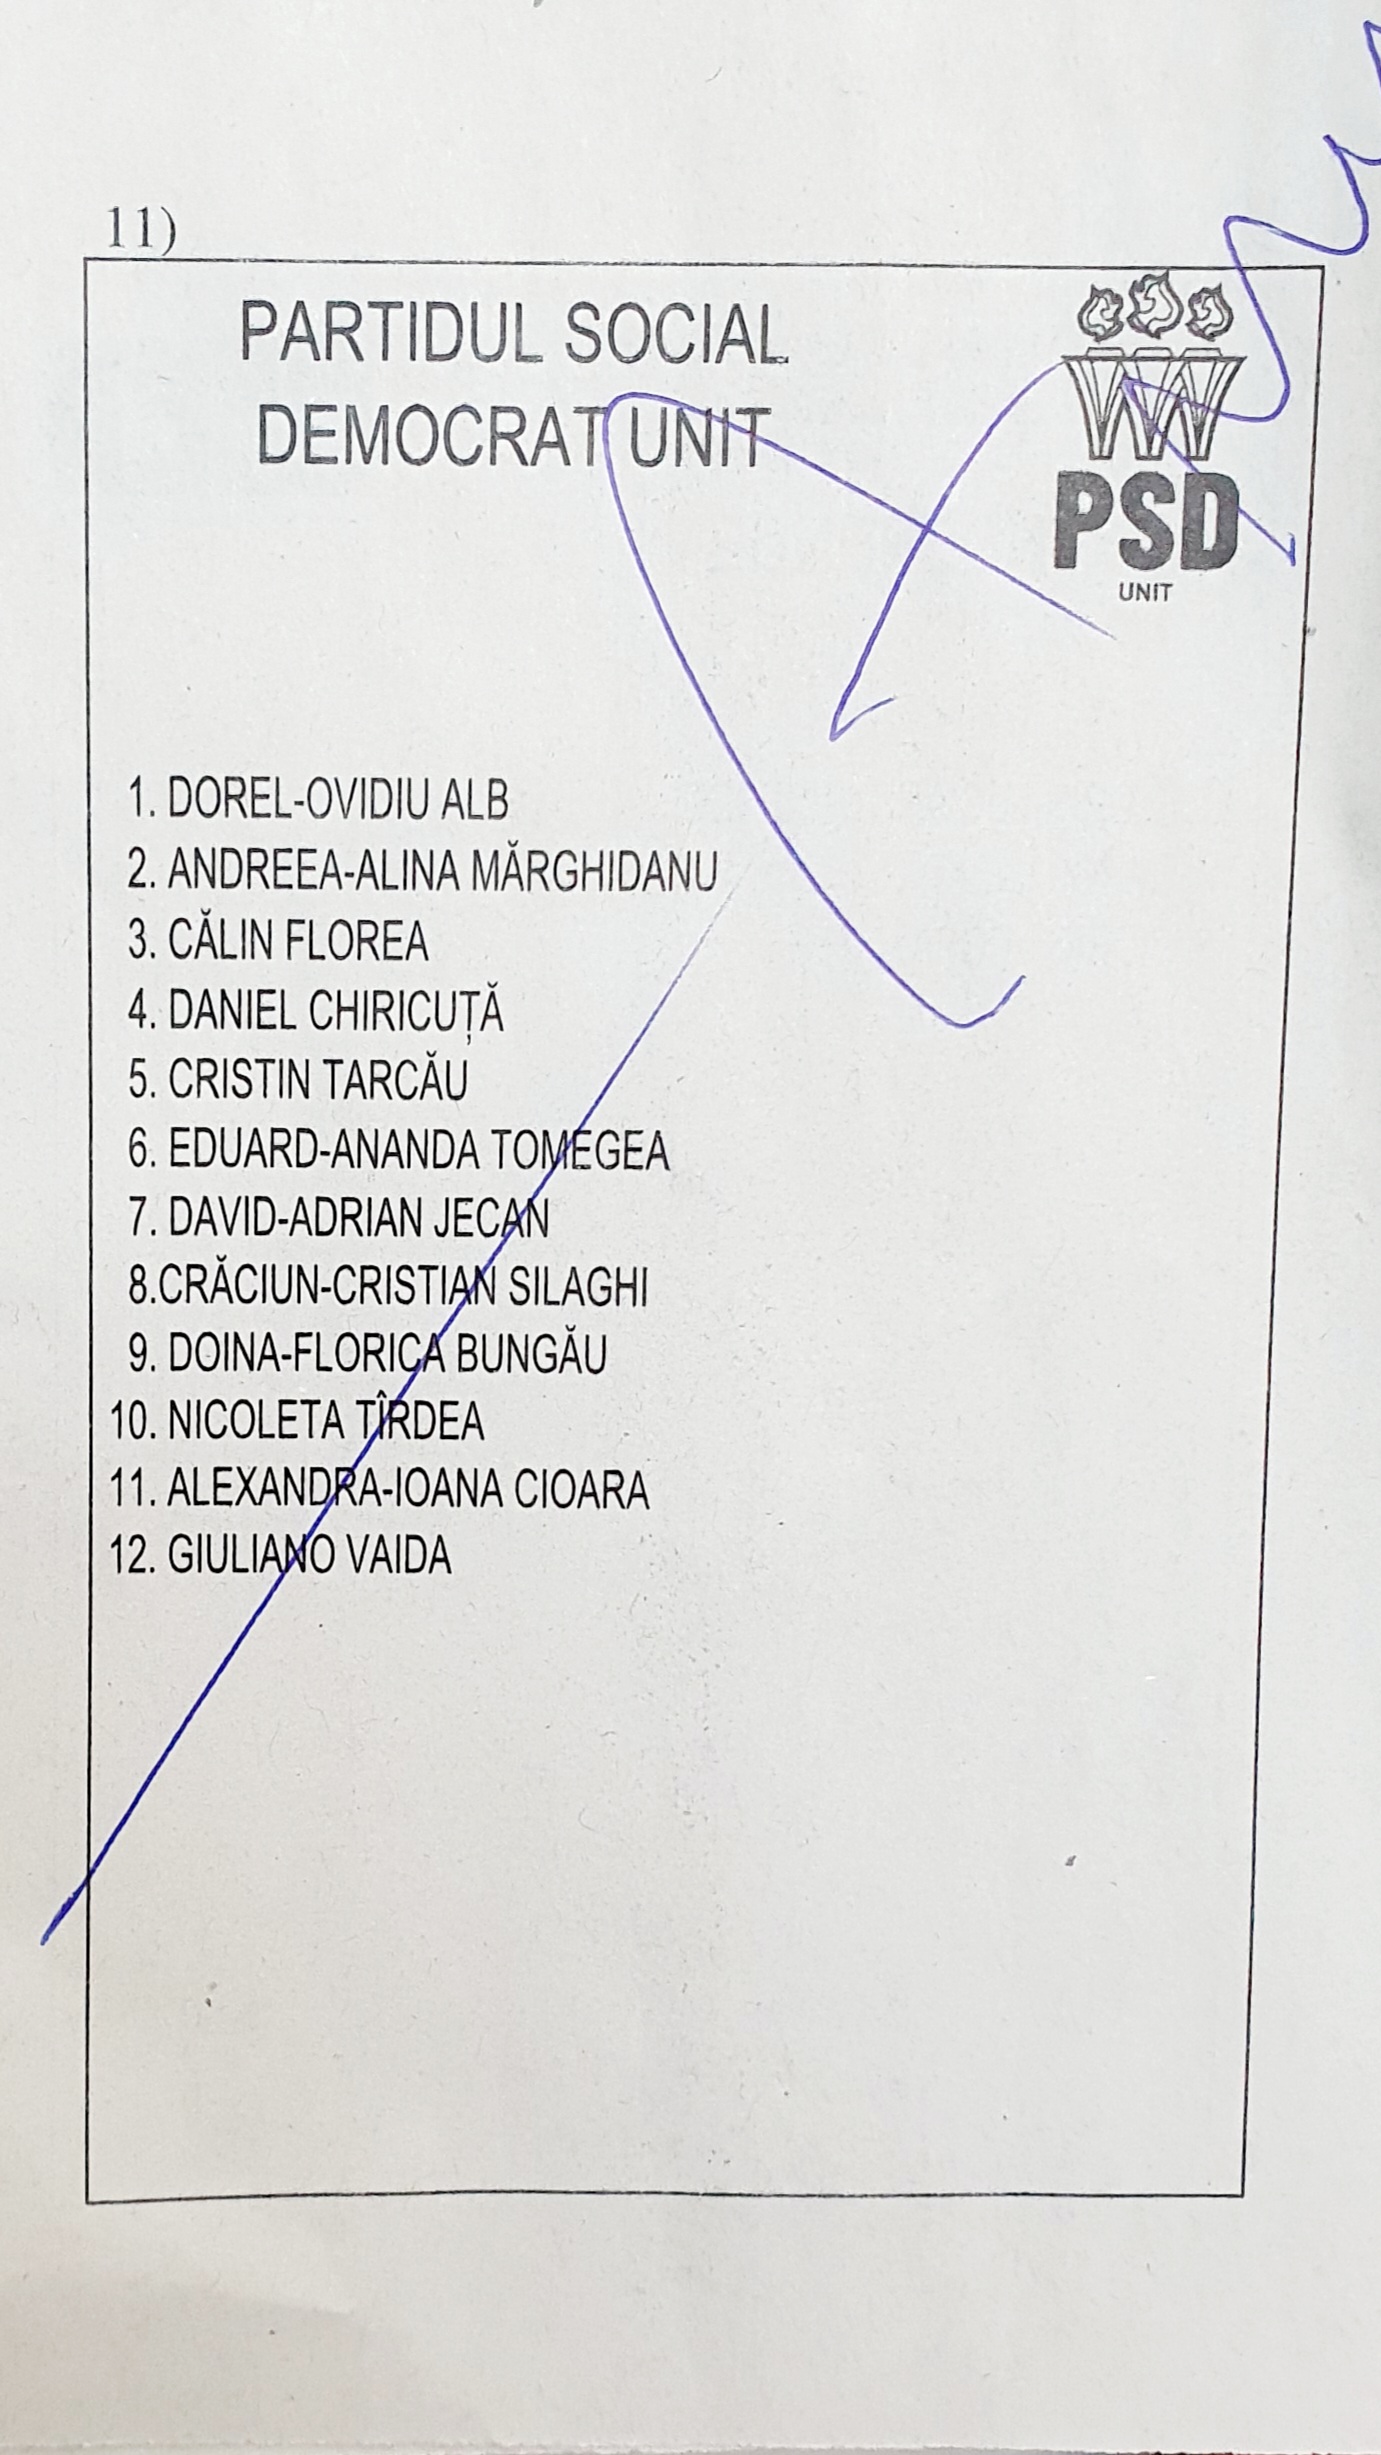 11)
PARTIDUL SOCIAL
DEMOCRAT UNIT
PSD
UNIT
1. DOREL-OVIDIU ALB
2. ANDREEA-ALINA MĂRGHIDANU
3. CĂLIN FLOREA
4. DANIEL CHIRICUȚĂ
5. CRISTIN TARCĂU
6. EDUARD-ANANDA TOMEGEA
7. DAVID-ADRIAN JECAN
8.CRĂCIUN-CRISTIAN SILAGHI
9. DOINA-FLORICA BUNGĂU
10. NICOLETA TÎRDEA
11. ALEXANDRA-IOANA CIOARA
12. GIULIANO VAIDA